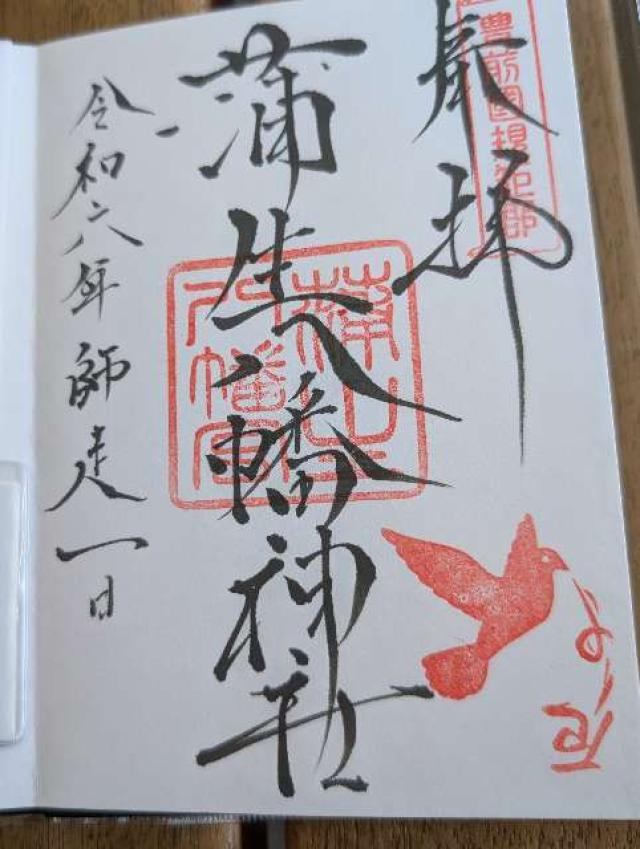 奉拝
豊前國規矩郡
蒲生八幡神社
蒲生八幡宮
令和六年師走一日